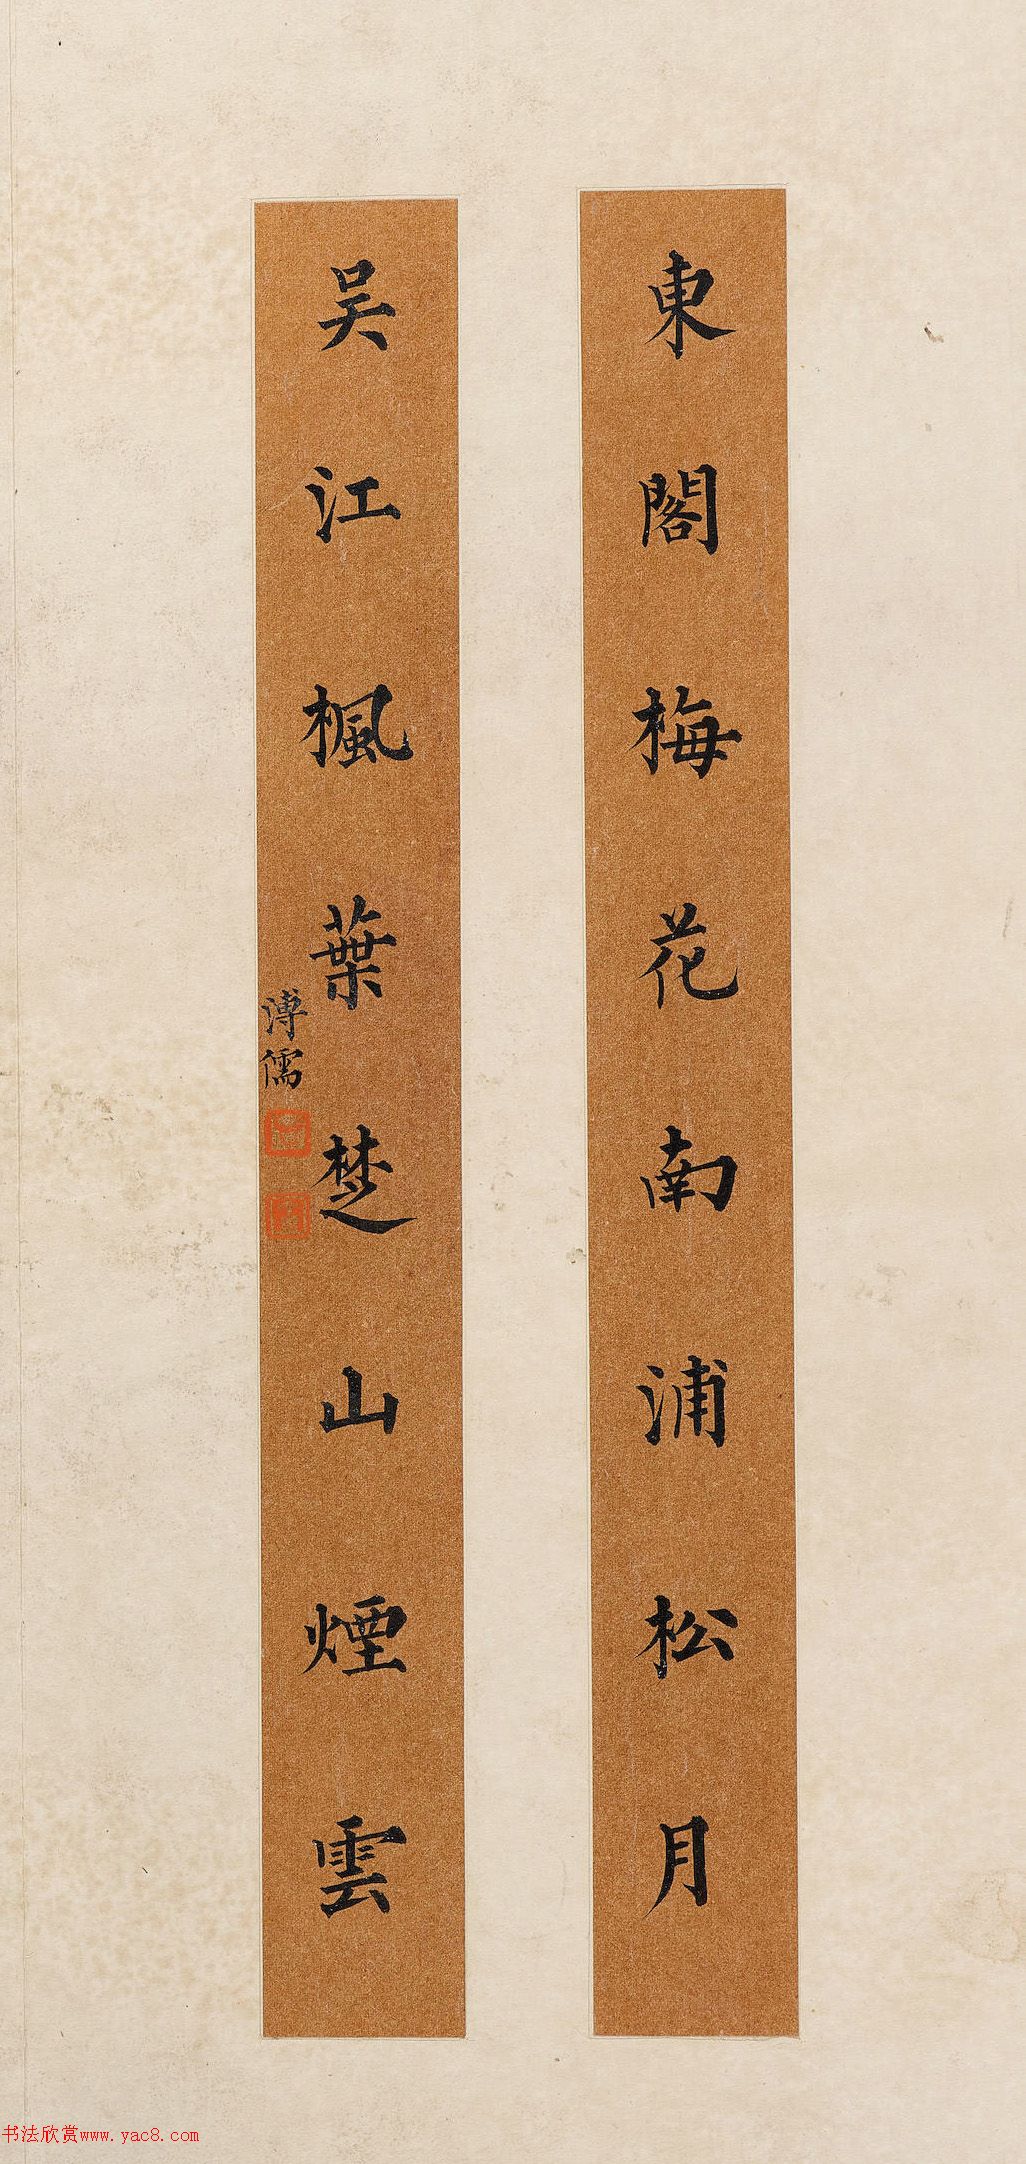 東閣梅花南浦松月
吴江楓葉楚山煙雲
溥儒
书法欣赏www.yac8.com